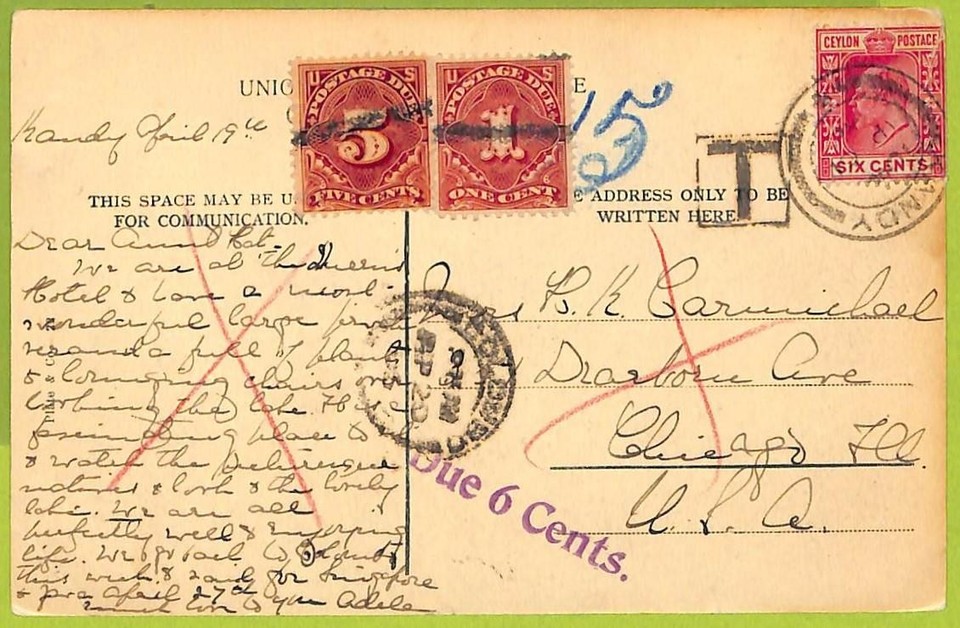 UNIO
E
U S
POSTAGE DUE
5
FIVE CENTS
U S
POSTAGE DUE
1
ONE CENT
15
T
CEYLON POSTAGE
SIX CENTS
KANDY
Kandy April 19th
THIS SPACE MAY BE U
FOR COMMUNICATION.
E ADDRESS ONLY TO BE
WRITTEN HERE.
Dear Aunt
We are at the Queen's
Hotel & have a most
wonderful large
veranda full of plants
& lounging chairs over
looking the lake.
fascinating place to
& watch the picturesque
natives & look & the lovely
lake. We are all
perfectly well & enjoying
life. We go back to Colombo
this week & Singapore
April 27th
much love to you Adele
Mrs B. K. Carmichael
Dearborn Ave
Chicago Ill.
U. S. A.
Due 6 Cents.
Plâté & C